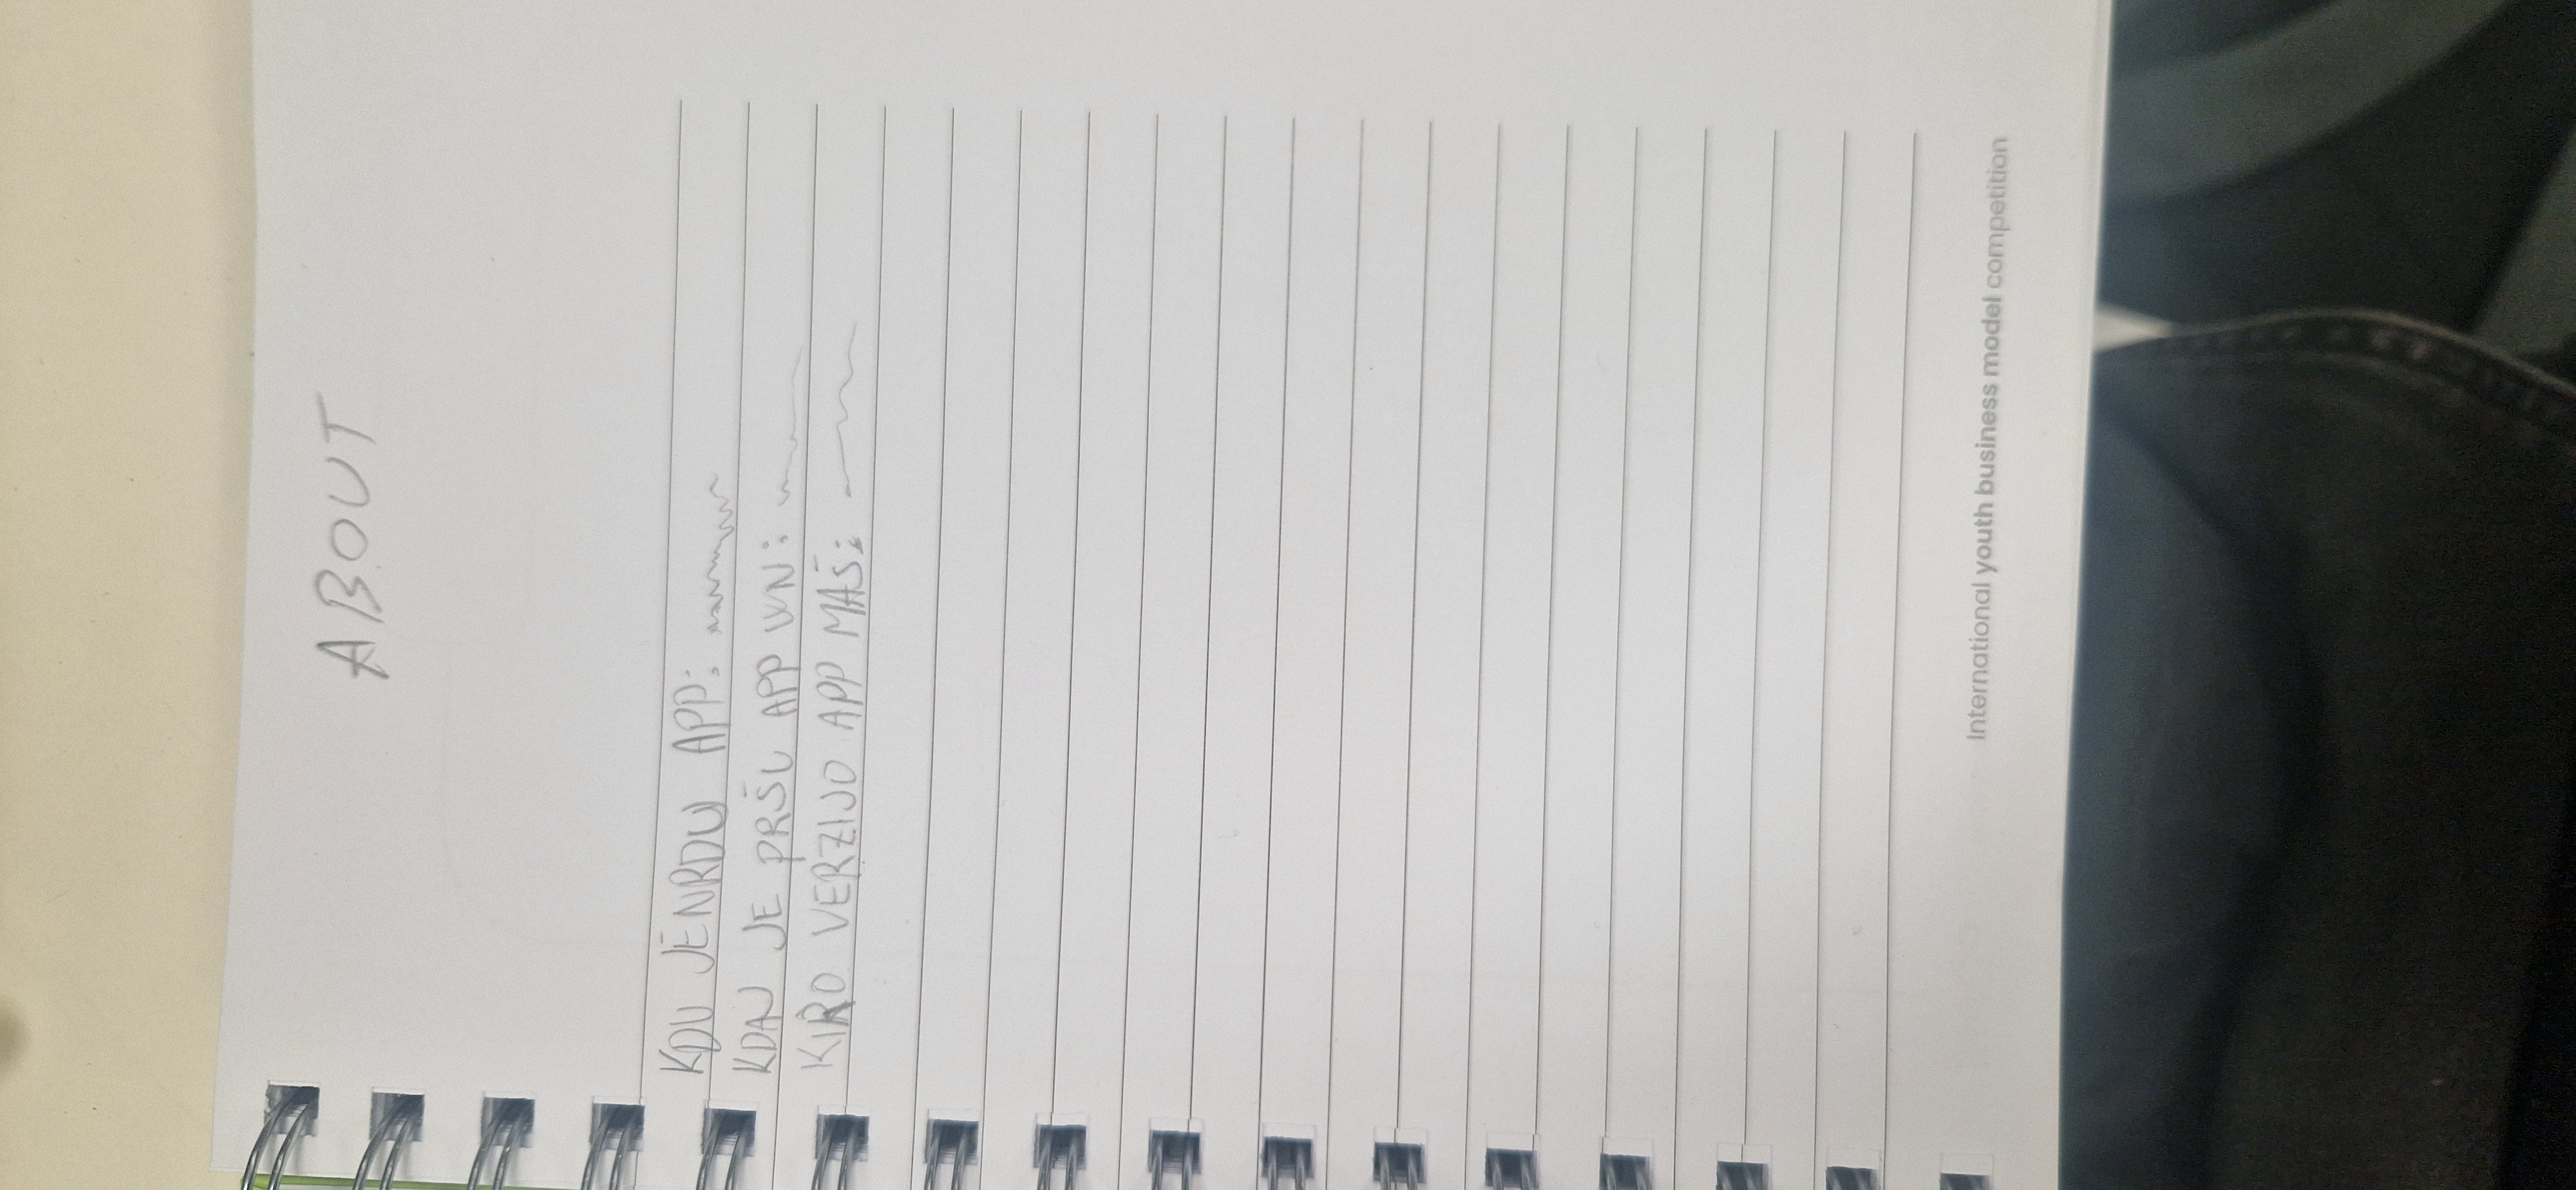 ABOUT
KDU JE NRDU APP:
KDAJ JE PRŠU APP VN:
KIRO VERZIJO APP MAŠ:
International youth business model competition